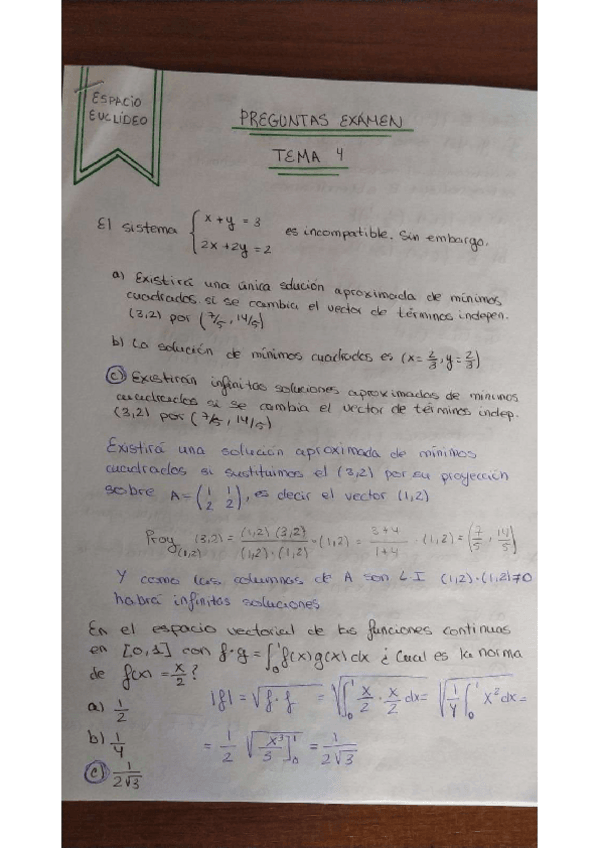 ESPACIO
EUCLÍDEO
PREGUNTAS EXAMEN
TEMA 4
El sistema { x + y = 3
2x + 2y = 2 es incompatible. Sin embargo,
a) Existirá una única solución aproximada de mínimos
cuadrados si se cambia el vector de términos indepen.
(3,2) por (7/5, 14/5)
b) La solución de mínimos cuadrados es (x = 2/3, y = 2/3)
c) Existirán infinitas soluciones aproximadas de mínimos
cuadrados si se cambia el vector de términos indep.
(3,2) por (7/5, 14/5)
Existirá una solución aproximada de mínimos
cuadrados si sustituimos el (3,2) por su proyección
sobre A = (1 1 / 2 2), es decir el vector (1,2)
Proy (1,2) (3,2) = (1,2)·(3,2) / (1,2)·(1,2) · (1,2) = 3+4 / 1+4 · (1,2) = (7/5, 14/5)
Y como las columnas de A son L I (1,2)·(1,2)≠0
habrá infinitas soluciones
En el espacio vectorial de las funciones continuas
en [0,1] con f·g = ∫₀¹ f(x)g(x)dx ¿Cual es la norma
de f(x) = x/2?
a) 1/2
|f| = √f·f = √∫₀¹ x/2 · x/2 dx = √1/4 ∫₀¹ x² dx =
b) 1/4
= 1/2 √x³/3]₀¹ = 1/2√3
c) 1/2√3